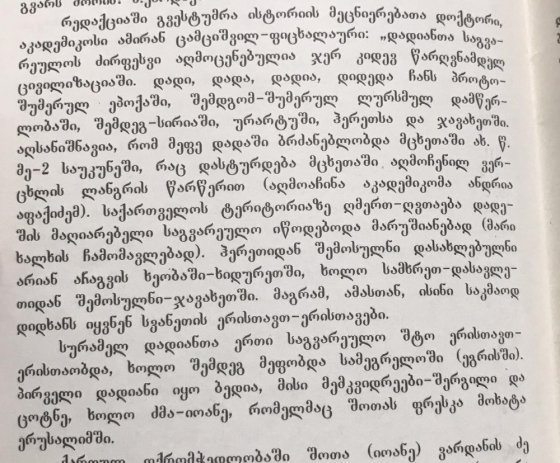 რედაქციაში გვესტუმრა ისტორიის მეცნიერებათა დოქტორი,
აკადემიკოსი ამირან ცამციშვილ-ფიცხალაური: „დადიანთა საგვა-
რეულოს ძირფესვი აღმოცენებულია ჯერ კიდევ წარღვნამდელ
ცივილიზაციაში. დადი, დადა, დადია, დიდედა ჩანს პროტო-
შუმერულ ეპოქაში, შემდგომ-შუმერულ ლურსმულ დამწერ-
ლობაში, შემდეგ-სირიაში, ურარტუში, ჰერეთსა და ჯავახეთში.
აღსანიშნავია, რომ მეფე დადაში ბრძანებლობდა მცხეთაში ახ. წ.
მე-2 საუკუნეში, რაც დასტურდება მცხეთაში აღმოჩენილ ვერ-
ცხლის ლანგრის წარწერით (აღმოაჩინა აკადემიკომა ანდრია
აფაქიძემ). საქართველოს ტერიტორიაზე ღმერთ-ღვთაება დადე-
შის მაღიარებელი საგვარეულო იწოდებოდა მარუშიანებად (მარი
ხალხის ჩამომავლებად). ჰერეთიდან შემოსულნი დასახლებულნი
არიან არაგვის ხეობაში-ხიდურეთში, ხოლო სამხრეთ-დასავლე-
თიდან შემოსულნი-ჯავახეთში. მაგრამ, ამასთან, ისინი საკმაოდ
დიდხანს იყვნენ სვანეთის ერისთავთ-ერისთავები.
სურამელ დადიანთა ერთი საგვარეულო შტო ერისთავთ-
ერისთაობდა, ხოლო შემდეგ მეფობდა სამეგრელოში (ეგრისში).
პირველი დადიანი იყო ბედია, მისი მემკვიდრეები-შერგილი და
ცოტნე, ხოლო ძმა-იოანე, რომელმაც შოთას ფრესკა მოხატა
ერუსალიმში.
ქართულ ოქრომჭედლობაში შოთა (იოანე) ვარდანის ძე